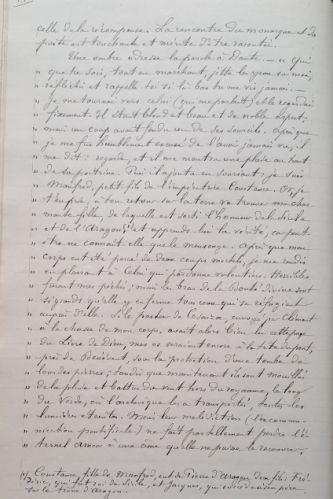 celle de la récompense. La rencontre du monarque et du
poète est touchante et mérite d'être racontée.
Une ombre adresse la parole à Dante. — « Qui
" que tu sois, tout en marchant, jette les yeux sur moi,
" réfléchis et rappelle toi si là bas tu me vis jamais.
" Je me tournai vers celui (qui me parlait) et le regardai
" fixement. Il était blond et beau et de noble aspect;
" mais un coup avait fendu un de ses sourcils. Après que
" je me fus humblement excusé de l'avoir jamais vu, il
" me dit : regarde, et il me montra une plaie au haut
" de sa poitrine. Puis il ajouta en souriant, je suis
" Manfred, petit fils de l'impératrice Constance. Or, je
" te prie, à ton retour sur la terre va trouver ma char-
" mante fille, de laquelle est sorti l'honneur de la Sicile
" et de l'Aragon, et apprends lui la vérité, car peut
" être ne connait elle que le mensonge. Après que mon
" corps eut été percé de deux coups mortels, je me rendis
" en pleurant à Celui qui pardonne volontiers. Horribles
" furent mes péchés; mais les bras de la Bonté Divine sont
" si grands qu'elle y enferme tous ceux qui se réfugient
" auprès d'elle. Si le pasteur de Cosenza, envoyé par Clément
" à la chasse de mon corps, avait alors bien lu cette page
" du Livre de Dieu, mes os seraient encore à la tête du pont,
" près de Bénévent, sous la protection d'une tombe de
" lourdes pierres; tandis que maintenant ils sont mouillés
" de la pluie et battus du vent hors du royaume, le long
" du Verde, où l'archevêque les a transportés, toutes les
" lumières éteintes. Mais leur malédiction (l'excommu-
" nication pontificale) ne fait pas tellement perdre l'é-
" ternel amour à une âme qu'elle ne puisse le recouvrer,
(*) Constance, fille de Manfred, eut de Pierre d'Aragon deux fils: Fré-
déric, qui fut roi de Sicile, et Jacques, qui succéda à son père
sur le trône d'Aragon.